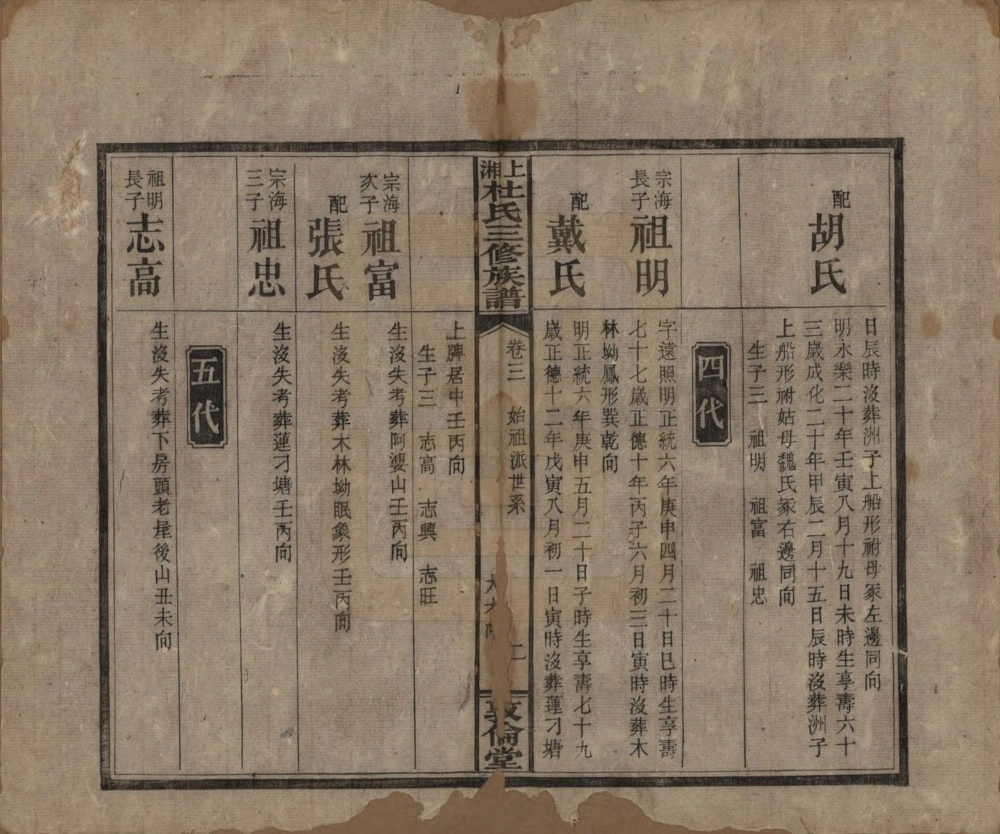 日辰時沒葬洲子上船形祔母冢左邊同向
配胡氏
明永樂二十年壬寅八月十九日未時生享壽六十
三歲成化二十年甲辰二月十五日辰時沒葬洲子
上船形祔姑母魏氏冢右邊同向
生子三　祖明　祖富　祖忠
四代
宗海長子祖明
字遠照明正統六年庚申四月二十日巳時生享壽
七十七歲正德十年丙子六月初三日寅時沒葬木
林坳鳳形巽乾向
配戴氏
明正統六年庚申五月二十日子時生享壽七十九
歲正德十二年戊寅八月初一日寅時沒葬蓮刁塘
上湘杜氏三修族譜
卷三　始祖派世系
二
敦倫堂
上脾居中壬丙向
生子三　志高　志興　志旺
宗海次子祖富
生沒失考葬阿婆山壬丙向
配張氏
生沒失考葬木林坳眠象形壬丙向
宗海三子祖忠
生沒失考葬蓮刁塘壬丙向
五代
祖明長子志高
生沒失考葬下房頭老屋後山丑未向